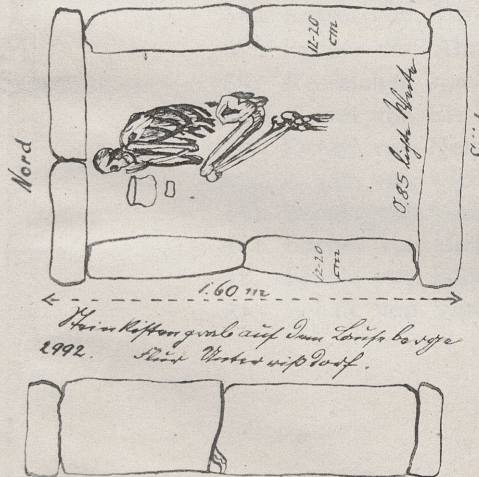 12-20
cm
Nord
0.85 lichte Weite
12-20
cm
1.60 m
Steinkistengrab auf dem Lauseberge
2992. Flur Unterrißdorf.